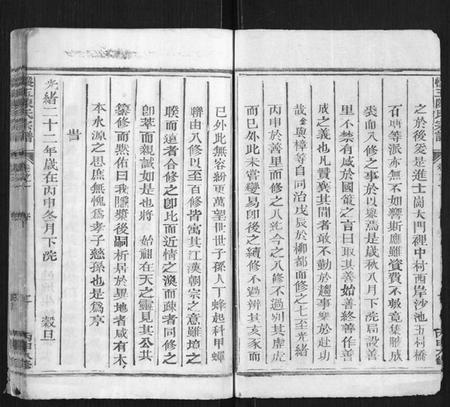 之於後爰是進士閎大門碑中村西岸沙池玉村橋
石嘴等派亦無不如響斯應雖資費不敷竟集腋成
裘而入修之事於以舉焉是歲秋八月下浣局設善
里不禁有感於國策之言曰取其善始善終善作善
成之義也凡贊襄其間者敢不勤於趨事樂於赴功
哉余與樟等自同治戊辰於柳都而修之七至光緒
丙申於善里而修之八迄今之八修不過别其虛虎
而已外此未嘗變易即後之續修不過辨其亥豕而
已外此無容紛更萬望世世子孫人丁蜂起科甲蟬
聯由八修以至百修皆寓其江漢朝宗之意雖境之
睽而遠者合修之即比而近情之渙而疎者同修之
即萃而親誠如是也將 始祖在天之靈見其公其
纂修而默佑曰我隱漿後嗣析居於異地者咸有木
本水源之思庶無愧爲孝子慈孫也是爲序
旹
光緒二十二年歲在丙申冬月下浣 穀旦